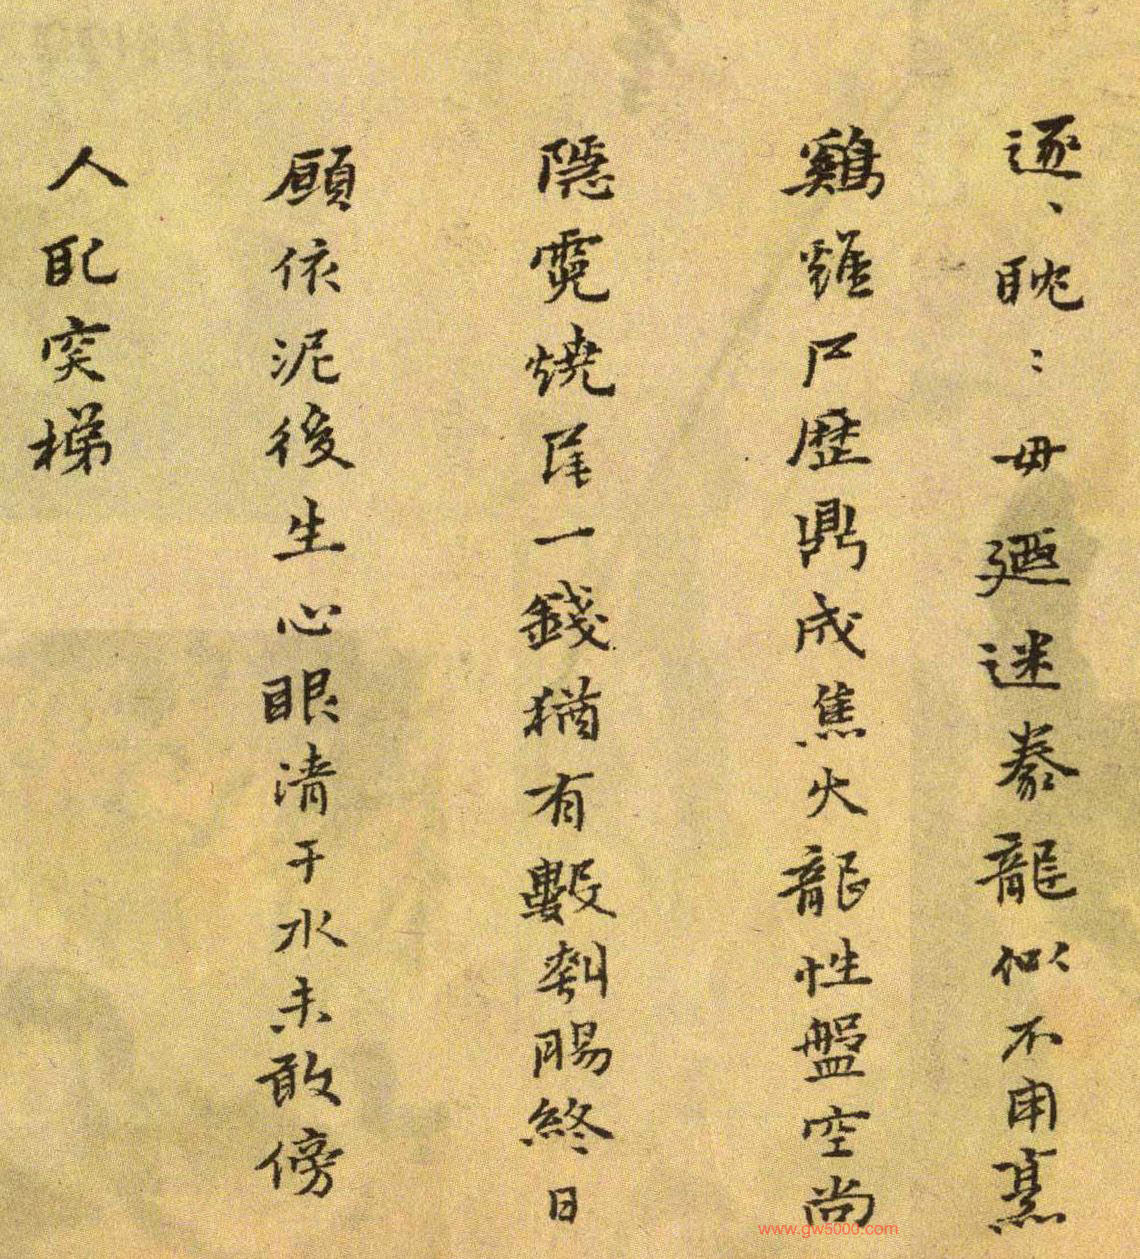 逐、眈：毋迺迷豢龍似不用烹
鷄雖尸歷鼎成焦火龍性盤空尚
隱霓燒尾一錢猶有數刳腸終日
願依泥後生心眼清于水未敢傍
人配突梯
www.gw5000.com